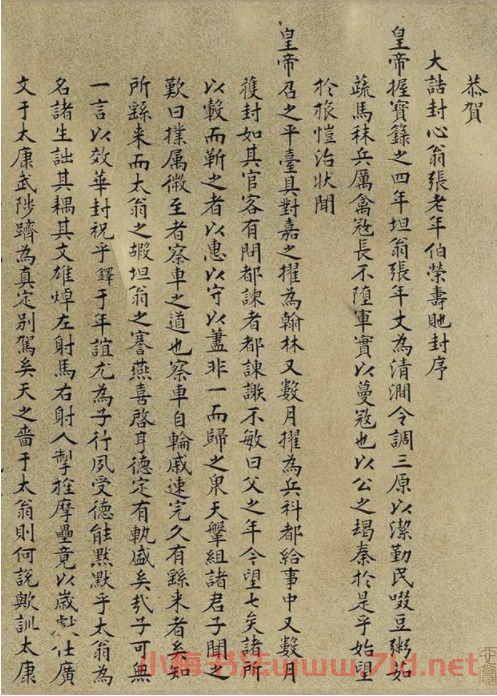 恭賀
大誥封心翁張老年伯榮壽貤封序
皇帝握寶籙之四年坦翁張年丈為清澗令調三原以潔勤民啜豆粥如
蔬馬秣兵厲禽寇長不墮軍實以蔓寇也以公之竭秦於是乎始望
於旅愷治狀聞
皇帝召之平臺且對嘉之擢為翰林又數月擢為兵科都給事中又數月
獲封如其官客有問都諫者都諫謝不敏曰父之年今望七矣諸所
以轂而靳之者以惠以守以藎非一而歸之泉天聲組諸君子聞之
歎曰樸属微至者察車之道也察車自輪戚速完久有繇来者矣知
所繇来而太翁之嘏坦翁之謇燕喜啓耳德定有軌盛矣哉子可無
一言以效華封祝乎鐸于年誼尤為子行夙受德能㸃默乎太翁為
名諸生詘其耦其文雄焯左射馬右射人掣拴摩壘竟以嵗仕廣
文于太康武陟躋為真定别駕矣天之嗇于太翁則何說歟訓太康
小梅书法www.7ld.net